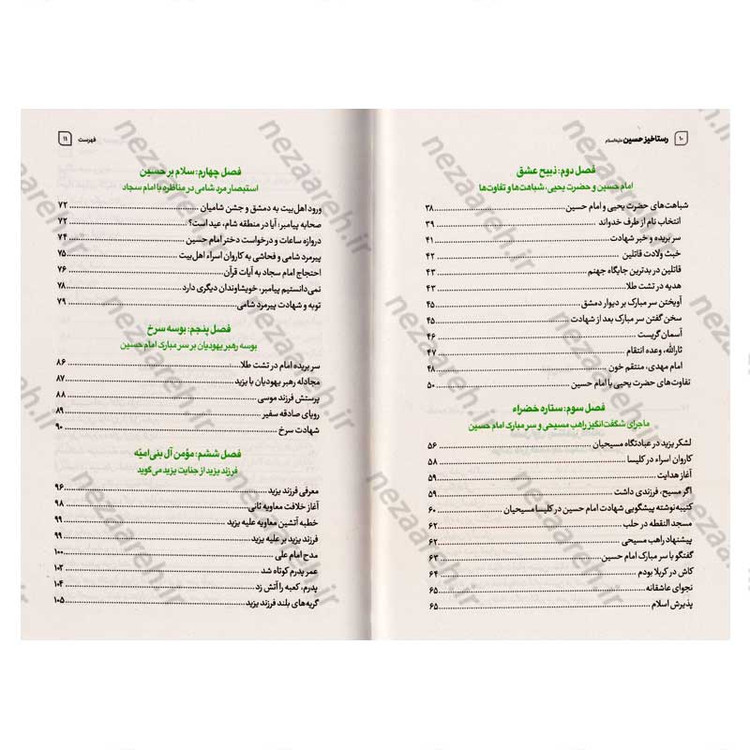 ۱۰ رستاخیز حسین علیه‌السلام
فصل دوم: ذبیح عشق
امام حسین و حضرت یحیی، شباهت‌ها و تفاوت‌ها
شباهت‌های حضرت یحیی و امام حسین ۳۸
انتخاب نام از طرف خدواند ۳۹
سر بریده و خبر شهادت ۴۱
خبث ولادت قاتلین ۴۲
قاتلین در بدترین جایگاه جهنم ۴۳
هدیه در تشت طلا ۴۳
آویختن سر مبارک بر دیوار دمشق ۴۵
سخن گفتن سر مبارک بعد از شهادت ۴۵
آسمان گریست ۴۶
ثارالله، وعده انتقام ۴۷
امام مهدی، منتقم خون ۴۸
تفاوت‌های حضرت یحیی با امام حسین ۵۰
فصل سوم: ستاره خضراء
ماجرای شگفت‌انگیز راهب مسیحی و سر مبارک امام حسین
لشکر یزید در عبادتگاه مسیحیان ۵۶
کاروان اسراء در کلیسا ۵۸
آغاز هدایت ۵۹
اگر مسیح، فرزندی داشت ۵۹
کتیبه نوشته پیشگویی شهادت امام حسین در کلیسا مسیحیان ۶۰
مسجد النقطه در حلب ۶۲
پیشنهاد راهب مسیحی ۶۲
گفتگو با سر مبارک امام حسین ۶۳
کاش در کربلا بودم ۶۴
نجوای عاشقانه ۶۵
پذیرش اسلام ۶۵
فهرست ۱۱
فصل چهارم: سلام بر حسین
استبصار مرد شامی در مناظره با امام سجاد
ورود اهل‌بیت به دمشق و جشن شامیان ۷۲
صحابه پیامبر: آیا در منطقه شام، عید است؟ ۷۲
دروازه ساعات و درخواست دختر امام حسین ۷۴
پیرمرد شامی و فحاشی به کاروان اسراء اهل‌بیت ۷۵
احتجاج امام سجاد به آیات قرآن ۷۶
نمی‌دانستیم پیامبر، خویشاوندان دیگری دارد ۷۸
توبه و شهادت پیرمرد شامی ۷۹
فصل پنجم: بوسه سرخ
بوسه رهبر یهودیان بر سر مبارک امام حسین
سر بریده امام در تشت طلا ۸۶
مجادله رهبر یهودیان با یزید ۸۷
پرستش فرزند موسی ۸۸
رویای صادقه سفیر ۸۹
شهادت سرخ ۹۰
فصل ششم: مؤمن آل بنی‌امیّه
فرزند یزید از جنایت یزید می‌گوید
معرفی فرزند یزید ۹۶
آغاز خلافت معاویه ثانی ۹۸
خطبه آتشین معاویه علیه یزید ۹۹
فرزند یزید بر علیه یزید ۹۹
مدح امام علی ۱۰۰
عمر پدرم کوتاه شد ۱۰۲
پدرم، کعبه را آتش زد ۱۰۴
گریه‌های بلند فرزند یزید ۱۰۵
nezaareh.ir